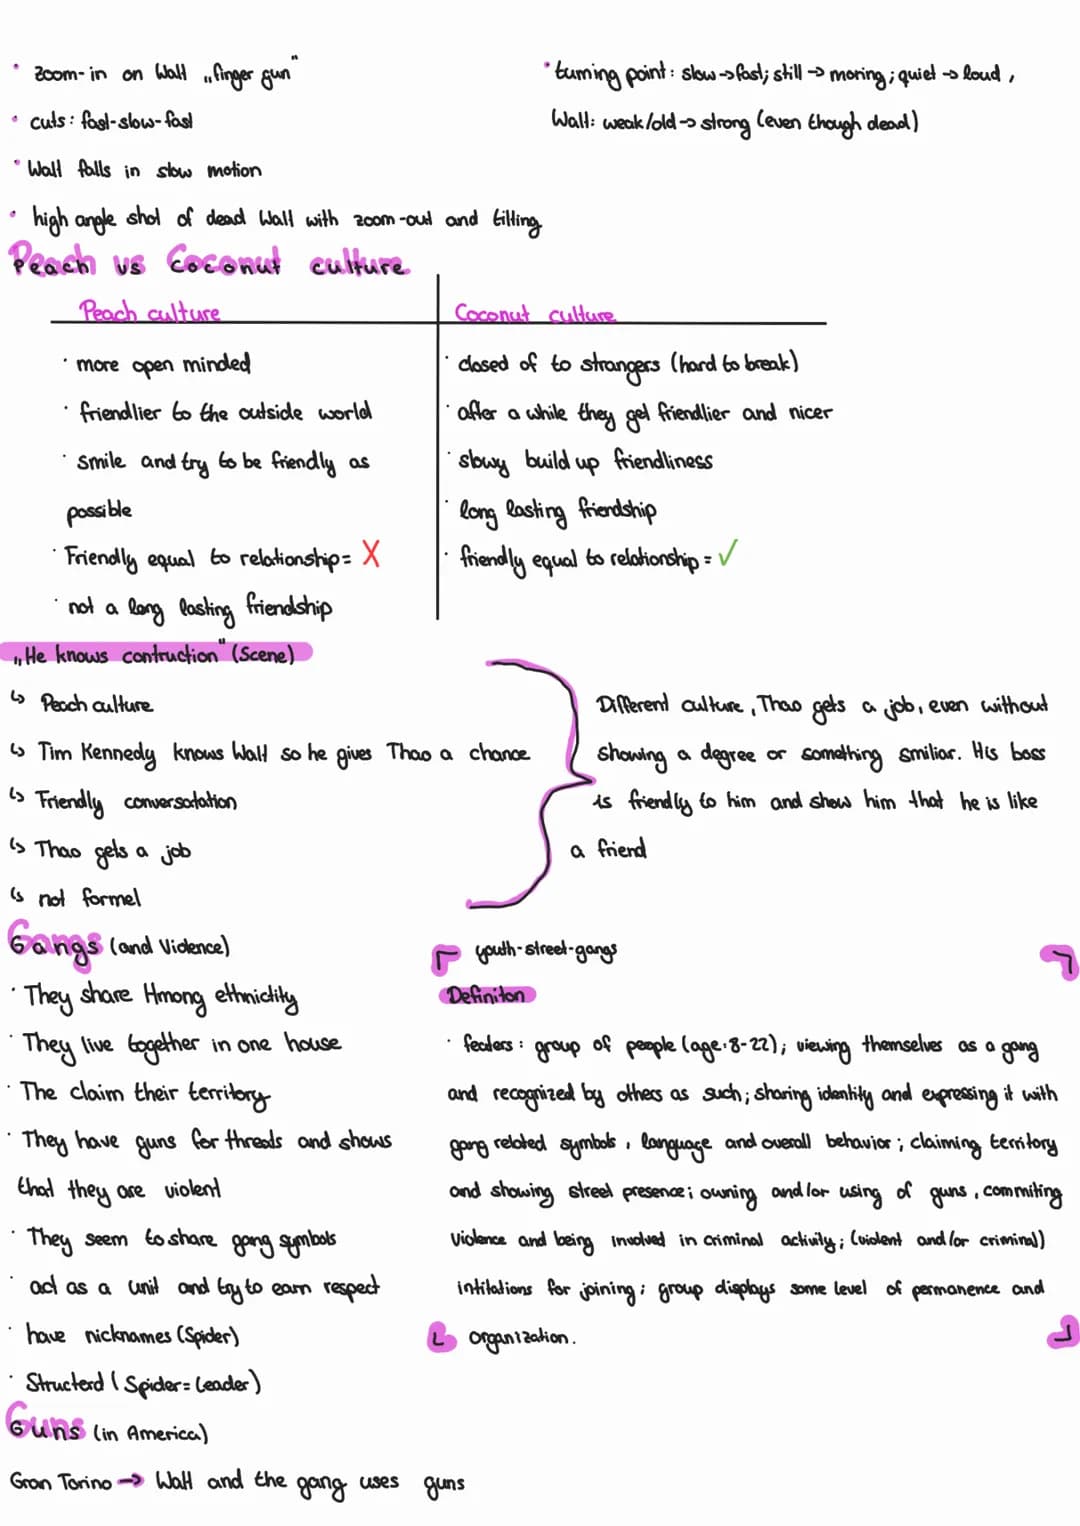 • zoom-in on Walt „finger gun"
• cuts: fast-slow-fast
• Walt falls in slow motion
• high angle shot of dead Walt with zoom-out and tilting
• turning point: slow → fast; still → moving; quiet → loud,
Walt: weak/old → strong (even though dead)
Peach vs Coconut culture
Peach culture
· more open minded
· friendlier to the outside world
· smile and try to be friendly as
possible
· Friendly equal to relationship = X
· not a long lasting friendship
Coconut culture
· closed of to strangers (hard to break)
· after a while they get friendlier and nicer
· slowy build up friendliness
· long lasting friendship
· friendly equal to relationship = ✓
„He knows contruction" (Scene)
↳ Peach culture
↳ Tim Kennedy knows Walt so he gives Thao a chance
↳ Friendly conversatation
↳ Thao gets a job
↳ not formel
Different culture, Thao gets a job, even without
showing a degree or something smiliar. His boss
is friendly to him and show him that he is like
a friend
Gangs (and Violence)
· They share Hmong ethnictity
· They live together in one house
· The claim their territory
· They have guns for threads and shows
that they are violent
· They seem to share gang symbols
· act as a unit and try to earn respect
· have nicknames (Spider)
· Structerd (Spider = Leader)
youth-street-gangs
Definiton
· featers: group of people (age: 8-22); viewing themselves as a gang
and recognized by others as such; sharing identity and expressing it with
gang related symbols, language and overall behavior; claiming territory
and showing street presence; owning and/or using of guns, commiting
violence and being involved in criminal activity; (violent and/or criminal)
intitations for joining; group displays some level of permanence and
organization.
Guns (in America)
Gran Torino → Walt and the gang uses guns